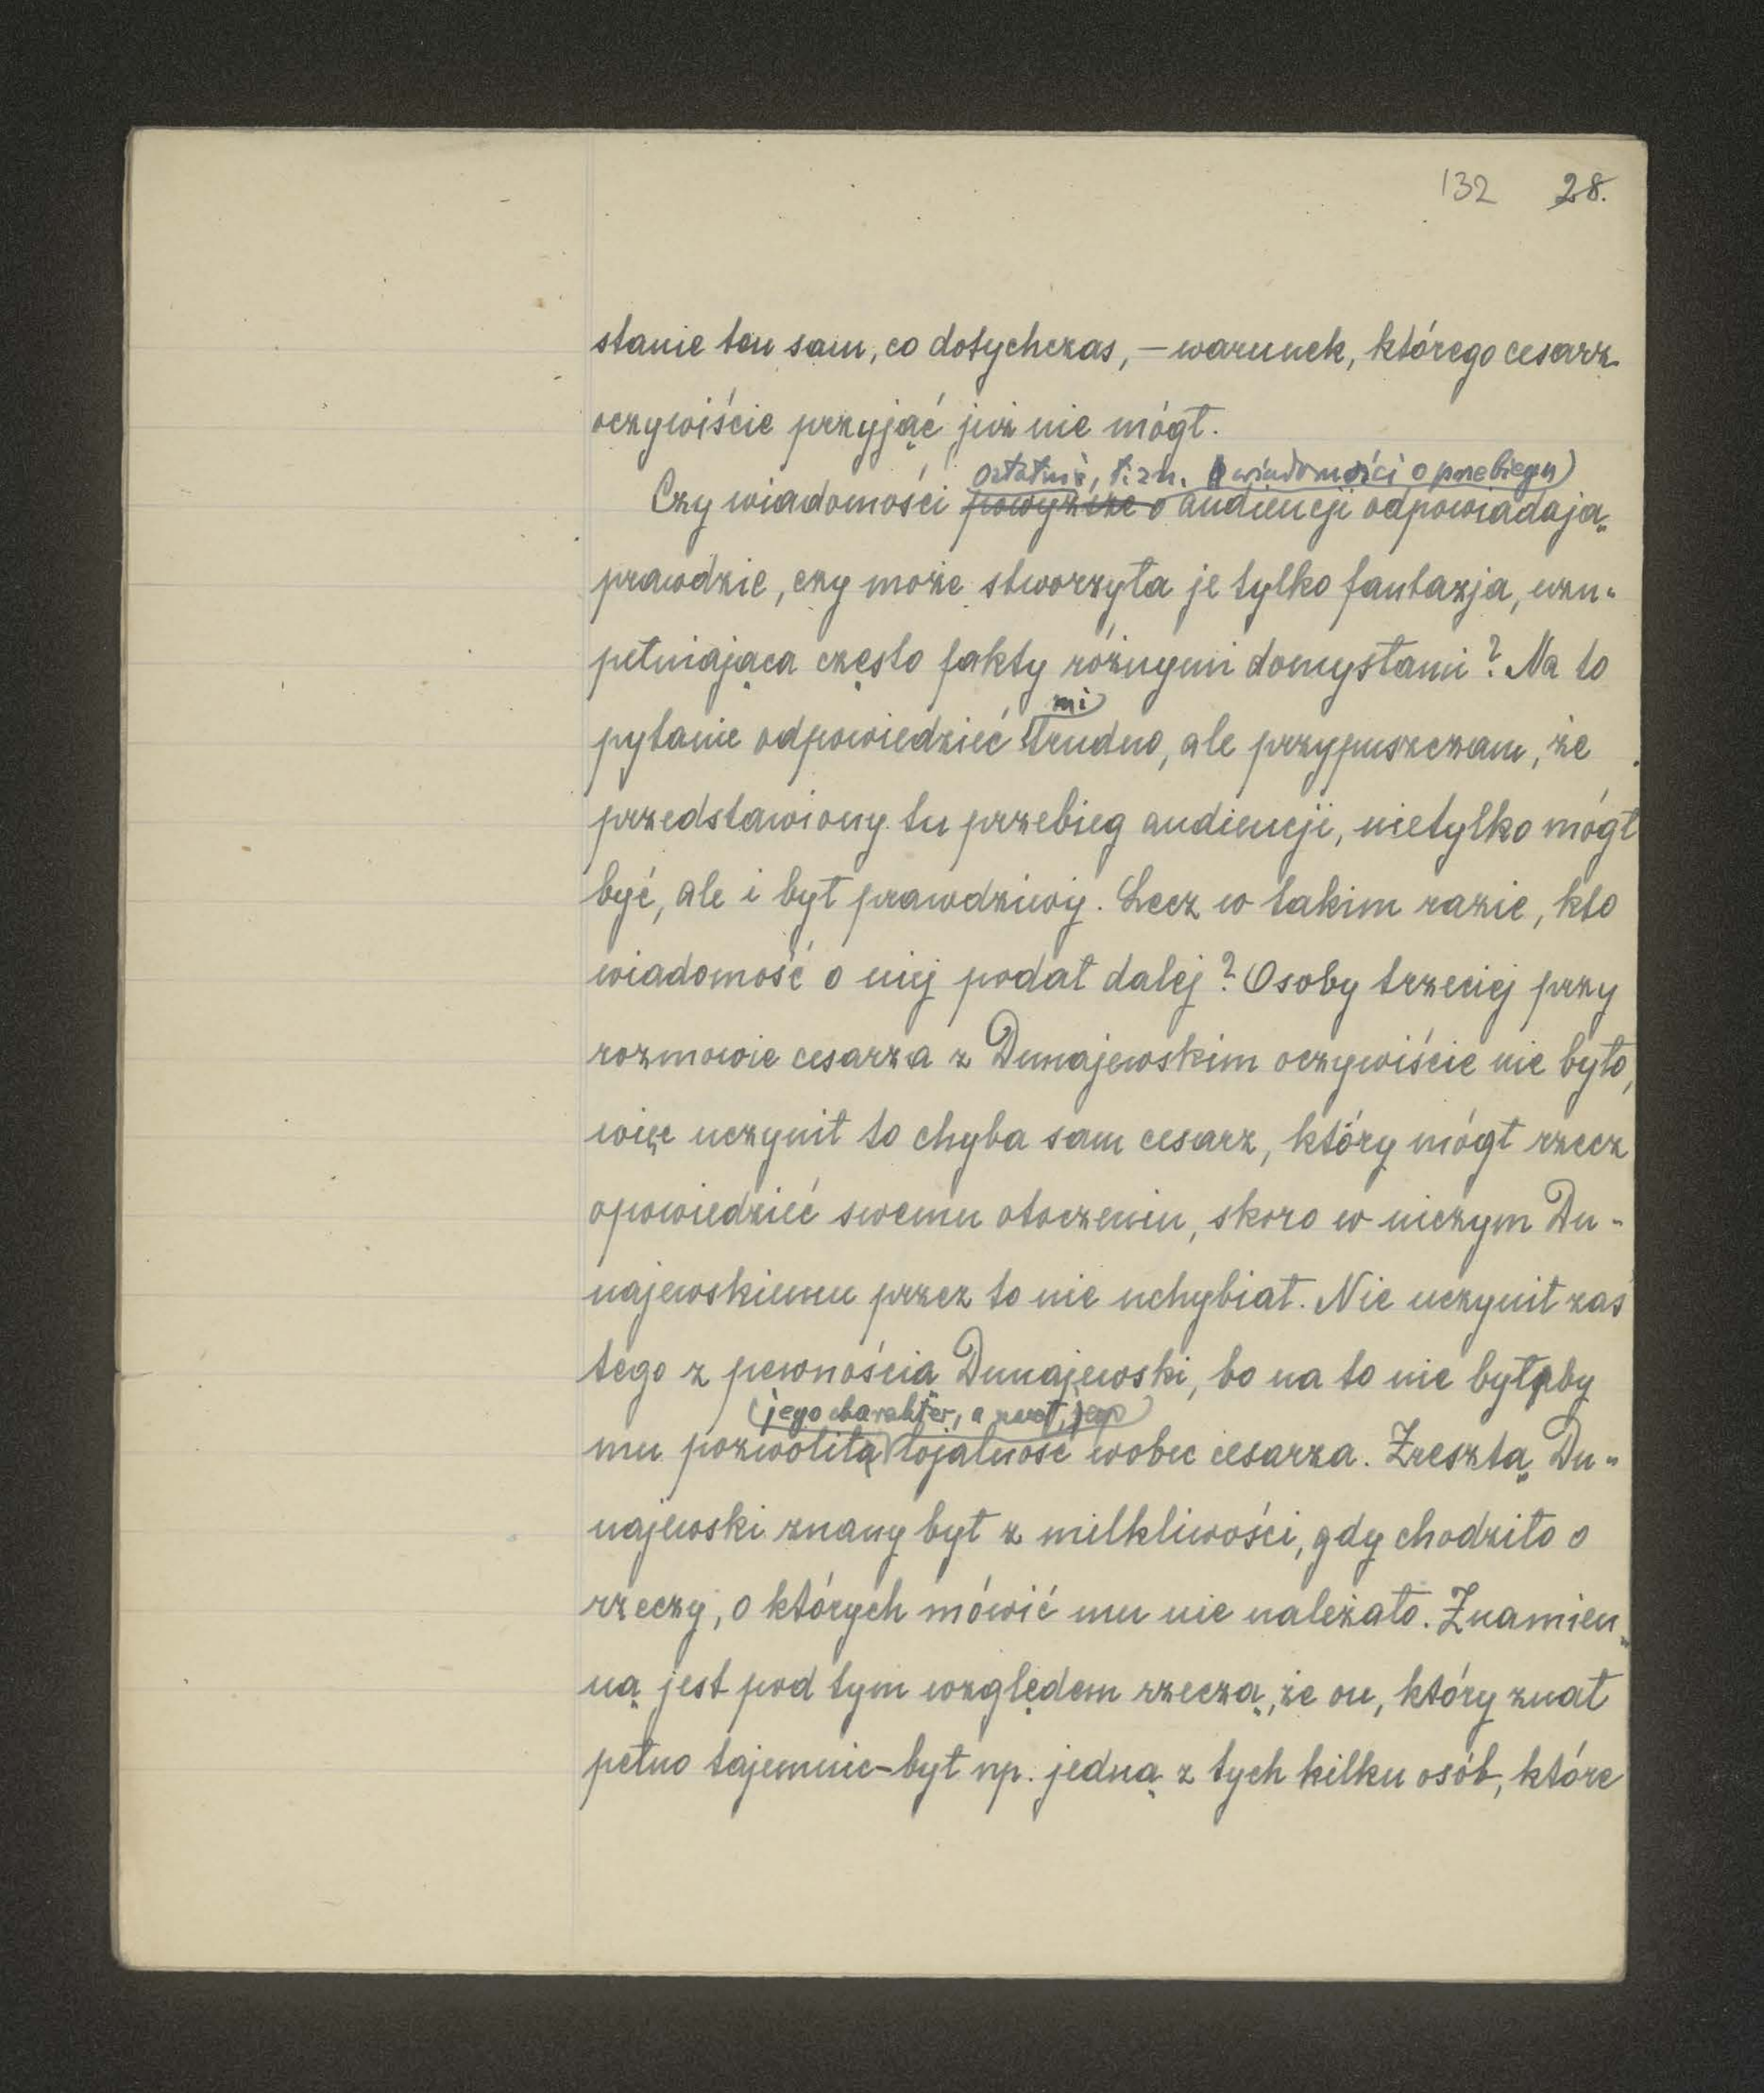 132 28.
stanie ten sam, co dotychczas, — warunek, którego cesarz
oczywiście przyjąć już nie mógł.
ostatnie, t. zn. wiadomości o przebiegu
Czy wiadomości powyższe o audiencji odpowiadają
prawdzie, czy może stworzyła je tylko fantazja, uzu-
pełniająca często fakty różnymi domysłami? Na to
mi
pytanie odpowiedzieć trudno, ale przypuszczam, że
przedstawiony tu przebieg audiencji, nietylko mógł
być, ale i był prawdziwy. Lecz w takim razie, kto
wiadomość o niej podał dalej? Osoby trzeciej przy
rozmowie cesarza z Dunajewskim oczywiście nie było,
więc uczynił to chyba sam cesarz, który mógł rzecz
opowiedzieć swemu otoczeniu, skoro w niczym Du-
najewskiemu przez to nie uchybiał. Nie uczynił zaś
tego z pewnością Dunajewski, bo na to nie byłby
jego charakter, a zwł. jego
mu pozwoliła lojalność wobec cesarza. Zresztą Du-
najewski znany był z milkliwości, gdy chodziło o
rzeczy, o których mówić mu nie należało. Znamien-
ną jest pod tym względem rzeczą, że on, który znał
pełno tajemnic – był np. jedną z tych kilku osób, które